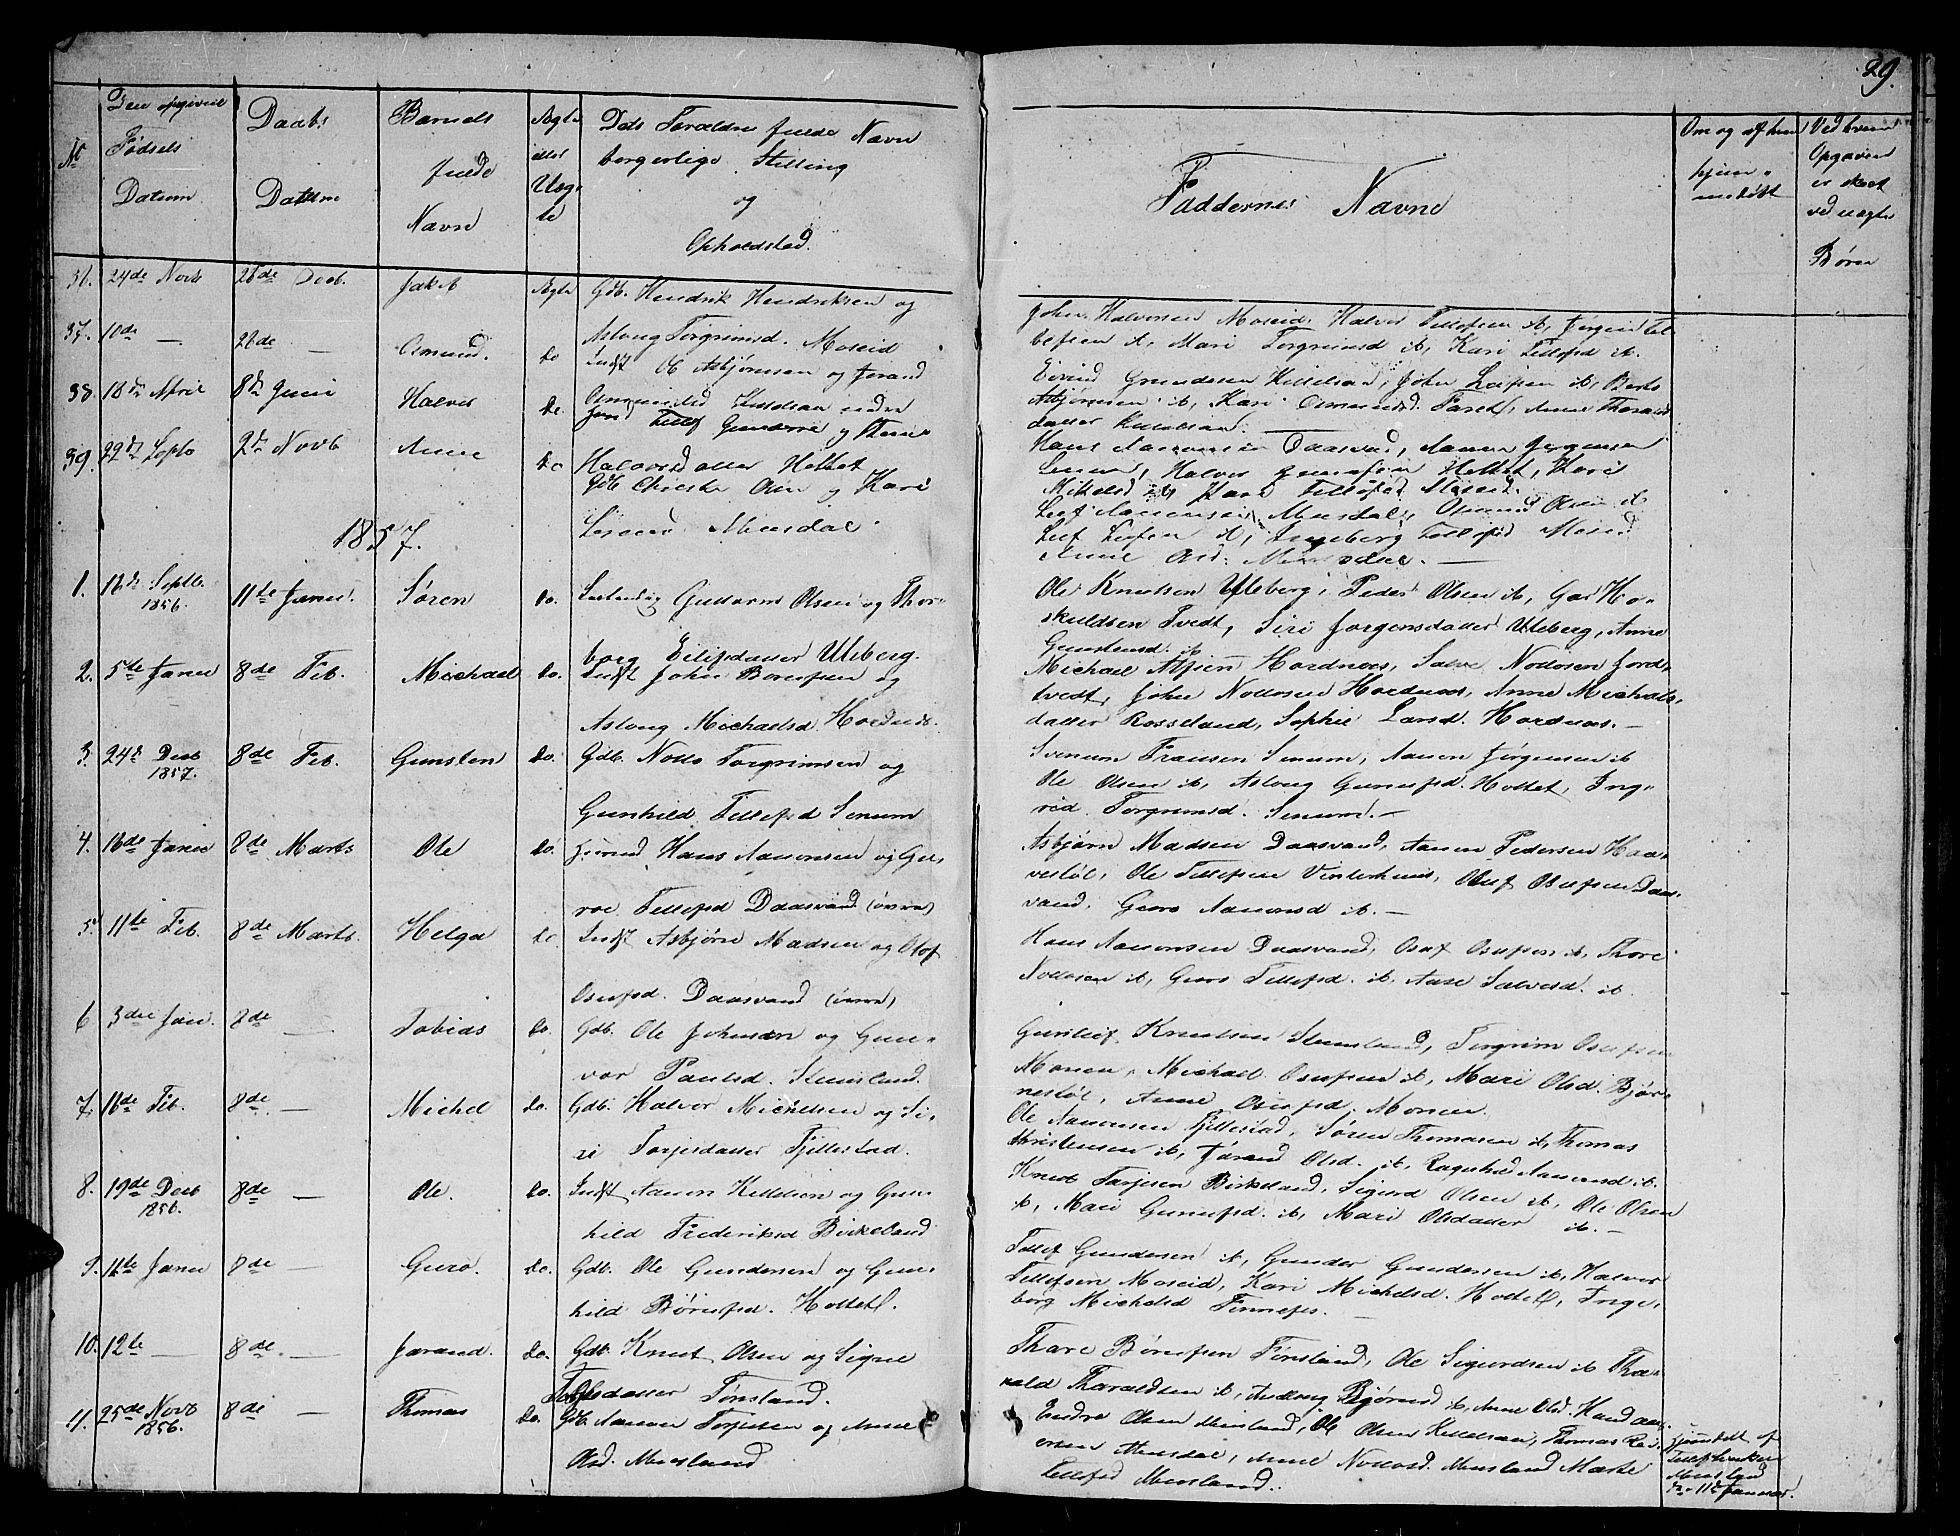 29.
No
Den opgivne
Fødsels
Datum
Daabs
Datum
Barnets
fulde
Navn
Ægte
eller
Uæg-
te
Dets Forældres fulde Navn
borgerlige Stilling
og
Opholdsted.
Faddernes Navne
Om og af hvem
hjem-
medøbt
Ved hvem
Opgaven
er skeet
ved uægte
Børn
36. 24de Novb 26de Decb. Jakob Ægte Gdb. Hendrik Hendriksen og
Aslaug Torgrimsd. Moseid
John Halvorsen Moseid, Halvor Tellefsen ib, Jørgen Tel-
lefsen ib, Mari Torgrimsd ib, Kari Tellefsd ib.
37. 10de — 26de — Osmund. do Indst Ole Asbjørnsen og Jorand
Osmundsd Killelsaa
Eivind Gundersen Killelsaa, John Leifsen ib, Bert
Asbjørnsen ib, Kari Osmundsd. ib, Anne Tharalds-
datter Killelsaa.
38. 18de April 8de Juni Halvor do. Tellef Gunders og
Halvorsdatter Hottet
Hans Aanonsen Daasvand, Aanon Jørgensen
Senum, Halvor Hottet, Kari
Mikelsd ib, Kari Tellefsd Moseid.
39. 22de Septb 2de Novb Anne do Gdb Christen Olsen og Kari
Minsdal.
Leif Aanonsen Minsdal, Osmund Olsen ib
Leif Leifsen ib, Ingeborg Tellefsd Moseid
Anne Olsd. Minsdal. —
1857.
1. 16de Septb. 1856. 11te Janu. Søren do. Guttorm Olsen og Thor-
borg Eilifsdatter Uleberg.
Ole Knutsen Uleberg, Peder Olsen ib, Ho-
skuldsen Tvedt, Siri Jørgensdatter Uleberg, Anne
Gunstensd. ib
2. 5te Janu 8de Feb. Michael do. Indst John Børufsen og
Aslaug Michaelsd Hordnæs.
Michael Alfsen Hordnæs, Salve Nottosen Jord-
tvedt, John Nottosen Hordnæs, Anne Michaels-
datter Rosseland, Sophie Larsd. Hordnæs. —
3. 24de Decb 1857. 8de Feb. Gunsten do. Gdb. Notto Torgrimsen og
Gunhild Tellefsd Senum
Svenum Fransen Senum, Aanon Jørgensen ib
Ole Olsen ib, Aslaug Gunufsd. Hottet, Ing-
rid Torgrimsd. Senum. —
4. 16de Janu 8de Marts Ole do. Hans Aanonsen og Gu-
roe Tellefsd Daasvand (øvre)
Asbjørn Madsen Daasvand, Aanon Pedersen Haa-
vestøl, Ole Tellefsen Vinterhuus, Osuf Osufsen Daas-
vand, Guro Aanonsd ib. —
5. 11te Feb. 8de Marts. Helga do. Indst Asbjørn Madsen og Olof
Osufsd. Daasvand (øvre)
Hans Aanonsen Daasvand, Osuf Osufsen ib, Thore
Nottosen ib, Guro Tellefsd. ib, Aase Salvesd. ib.
6 3die Jan. 8de — Tobias do. Gdb. Ole Johnsen og Gun-
vor Paulsd. Stemsland.
Gunleif Knutsen Stemsland, Torgrim Osufsen
Monen, Michael Osufsen ib, Mari Olsd. Bjør-
nestøl, Anne Osufsd. Monen.
7. 16de Feb. 8de — Michel do. Gdb. Halvor Michelsen og Si-
ri Torjesdatter Fjellestad.
Ole Aanonsen Fjellestad, Søren Thomasen ib, Thomas
Christensen ib, Jorand Olsd. ib, Ragnhild Aanonsd ib.
8. 19de Decb 1856. 8de — Ole. do. Indst Aanon Killelsen og Gun-
hild Frederiksd Birkeland
Knut Torjesen Birkeland, Sigurd Olsen ib, Ole Olsen
ib, Mari Gunufsd. ib, Mari Olsdatter ib. —
9. 16te Janu 8de — Guro. do. Gdb. Ole Gundersen og Gun-
hild Børufsd. Hottet.
Tellef Gundersen ib, Gunder Gundersen ib, Halvor
Tellefsen Moseid, Kari Michelsd. Hottet, Inge-
borg Michelsd Finnefos. —
10. 12te — 8de. — Jorand. do. Gdb. Knut Olsen og Signe
datter Tønsland.
Thore Børufsen Tønsland, Ole Sigurdsen ib Tha-
rald Tharaldsen ib, Aadlaug Bjørnsd ib, Anne Olsd.
11. 25de Novb 1856. 8de — Thomas do. Gdb. Aanon Torjusen og Anne
Olsd. Minsland
Endre Olsen Minsland, Ole Olsen Killelsaa, Thomas Rei-
ersen Minsdal, Anne Nottosd. Minsland Marte
Tellefsd Minsland.
hjemdøbt af
Tellef
Minsland
11te Januar.